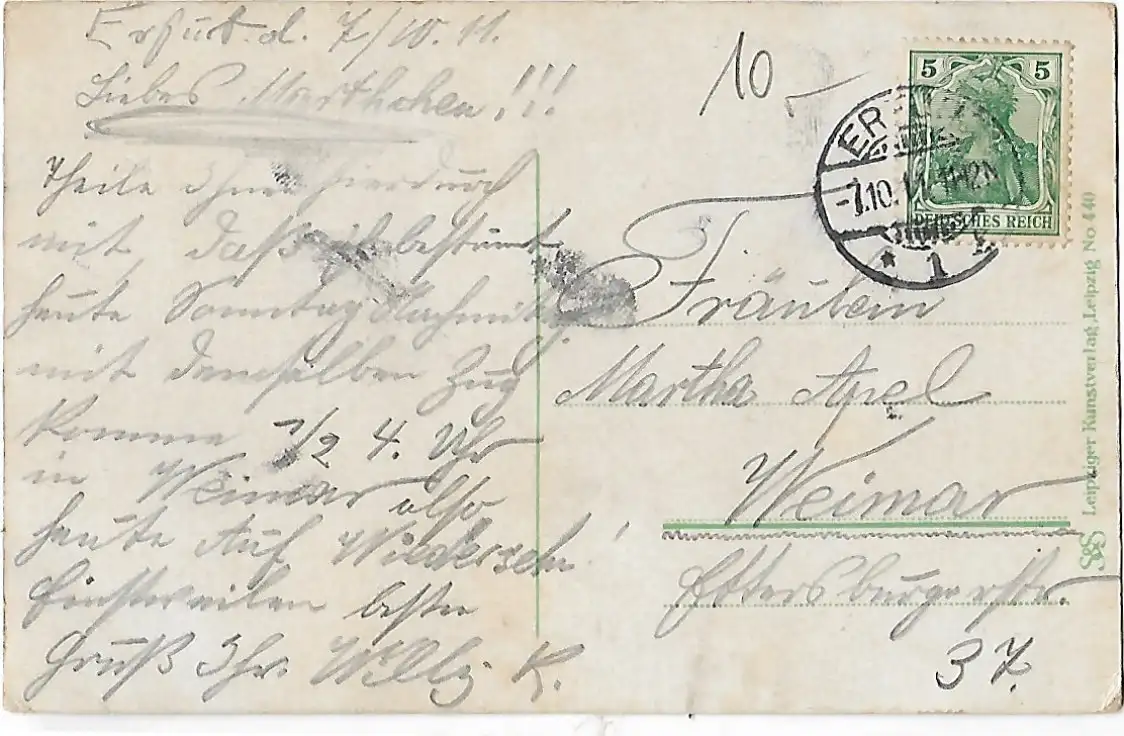 Erfurt. d. 7/10. 11.
Liebes Marthchen!!!
Theile Ihnen hierdurch
mit daß ich bestimmt
heute Sonntag Nachmittg
mit demselben Zug
komme 1/2 4. Uhr
in Weimar also
heute Auf Wiedersehn!
Einstweilen besten
Gruß Ihr. Willy K.
10 –
5 5
DEUTSCHES REICH
ERFURT
-7.10.11. 11-12V
* 1
Fräulein
Martha Apel
Weimar
Ettersburgerstr.
37.
S&S Leipziger Kunstverlag, Leipzig No 440